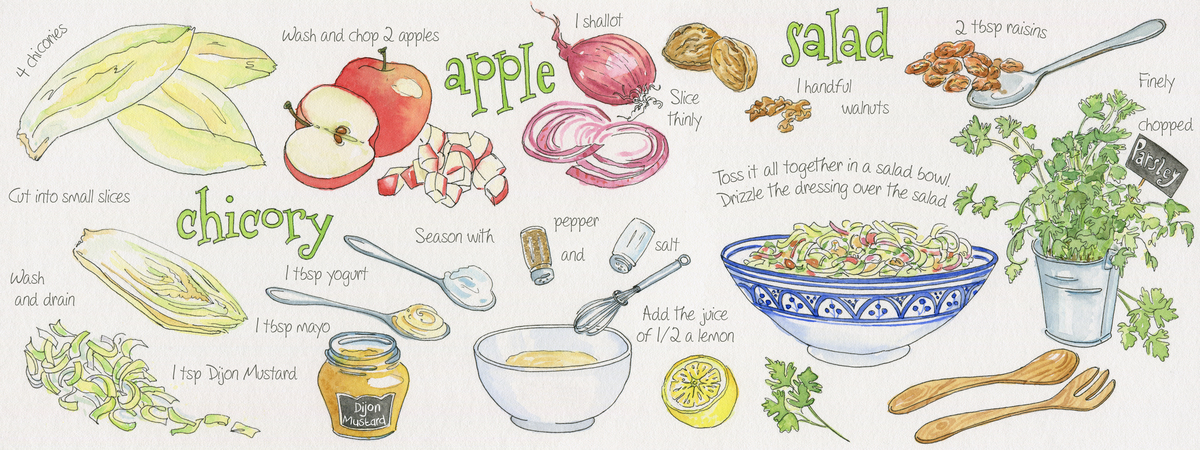 4 chicories
Wash and chop 2 apples
apple
1 shallot
Slice
thinly
salad
1 handful
walnuts
2 tbsp raisins
Finely
chopped
Parsley
Cut into small slices
chicory
Wash
and drain
1 tbsp yogurt
1 tbsp mayo
1 tsp Dijon Mustard
Dijon
Mustard
Season with
pepper
and
salt
Add the juice
of 1/2 a lemon
Toss it all together in a salad bowl.
Drizzle the dressing over the salad